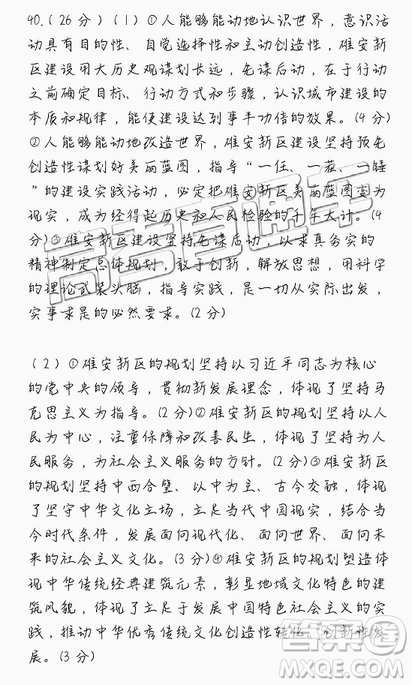 40.(26分)(1)①人能够能动地认识世界，意识活
动具有目的性、自觉选择性和主动创造性，雄安新
区建设用大历史观谋划长远，先谋后动，在于行动
之前确定目标、行动方式和步骤，认识城市建设的
本质和规律，能使建设达到事半功倍的效果。(4分)
②人能够能动地改造世界，雄安新区建设坚持预先
创造性谋划好美丽蓝图，指导“一任、一茬、一
”的建设实践活动，必定把雄安新区美丽蓝图变为
现实，成为经得起历史和人民检验的千年大计。(4
分)③雄安新区建设坚持先谋后动，以求真务实的
精神制定总体规划，敢于创新，解放思想，用科学
的理论武装头脑，指导实践，是一切从实际出发，
实事求是的必然要求。(2分)
(2)①雄安新区的规划坚持以习近平同志为核心
的党中央的领导，贯彻新发展理念，体现了坚持马
克思主义为指导。(2分)②雄安新区的规划坚持以人
民为中心，注重保障和改善民生，体现了坚持为人
民服务，为社会主义服务的方针。(2分)③雄安新区
的规划坚持中西合璧、以中为主、古今交融，体现
了坚守中华文化立场，立足当代中国现实，结合当
今时代条件，发展面向现代化、面向世界、面向未
来的社会主义文化。(3分)④雄安新区的规划塑造体
现中华传统经典建筑元素，彰显地域文化特色的建
筑风貌，体现了立足于发展中国特色社会主义的实
践，推动中华优秀传统文化创造性转化、创新性发
展。(3分)
高考直通车
答案圈